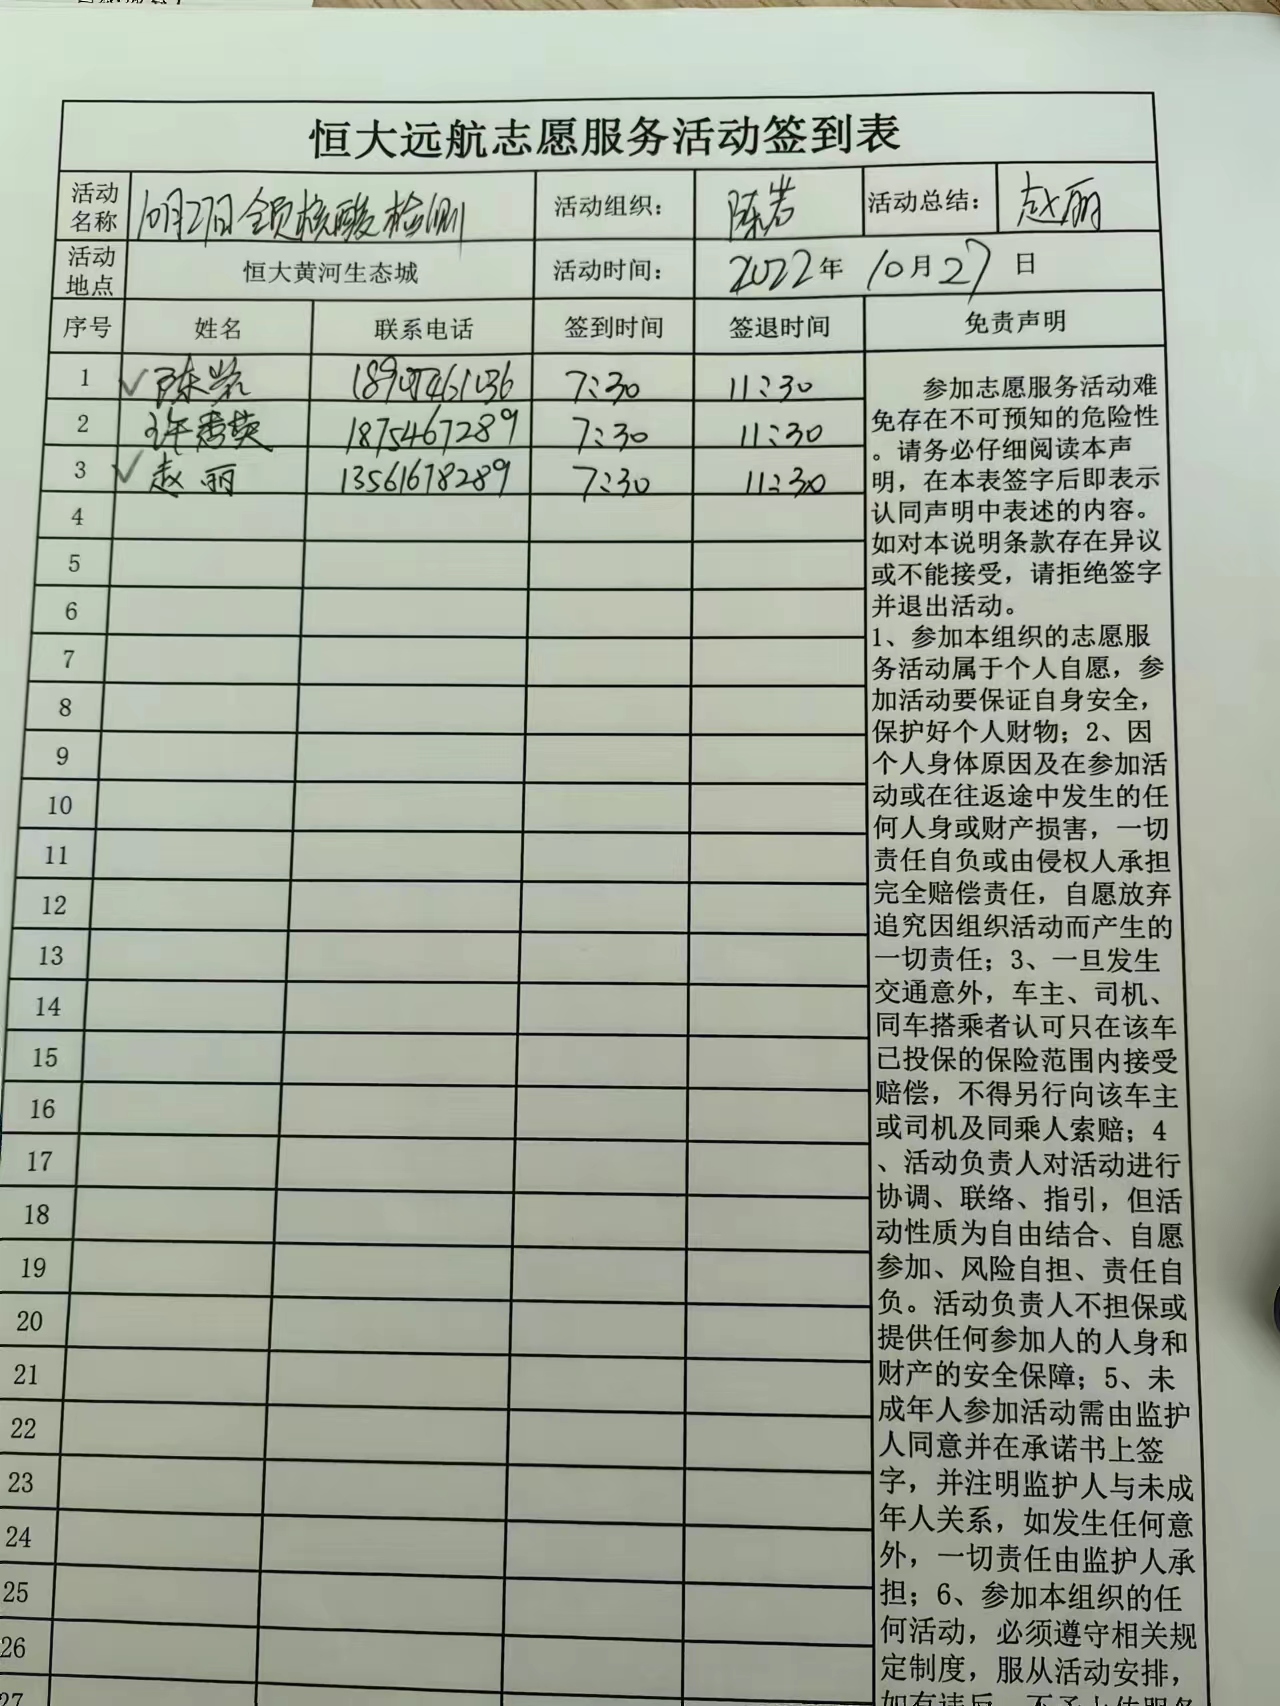 恒大远航志愿服务活动签到表
活动名称 10月27日全员核酸检测 活动组织： 陈岩 活动总结： 赵丽
活动地点 恒大黄河生态城 活动时间： 2022年 10月27日
序号 姓名 联系电话 签到时间 签退时间 免责声明
1 ✓陈岩 7:30 11:30
2 许秀英 18754467289 7:30 11:30
3 ✓赵丽 13561678289 7:30 11:30
4
5
6
7
8
9
10
11
12
13
14
15
16
17
18
19
20
21
22
23
24
25
26
27
参加志愿服务活动难
免存在不可预知的危险性
。请务必仔细阅读本声
明，在本表签字后即表示
认同声明中表述的内容。
如对本说明条款存在异议
或不能接受，请拒绝签字
并退出活动。
1、参加本组织的志愿服
务活动属于个人自愿，参
加活动要保证自身安全，
保护好个人财物；2、因
个人身体原因及在参加活
动或在往返途中发生的任
何人身或财产损害，一切
责任自负或由侵权人承担
完全赔偿责任，自愿放弃
追究因组织活动而产生的
一切责任；3、一旦发生
交通意外，车主、司机、
同车搭乘者认可只在该车
已投保的保险范围内接受
赔偿，不得另行向该车主
或司机及同乘人索赔；4
、活动负责人对活动进行
协调、联络、指引，但活
动性质为自由结合、自愿
参加、风险自担、责任自
负。活动负责人不担保或
提供任何参加人的人身和
财产的安全保障；5、未
成年人参加活动需由监护
人同意并在承诺书上签
字，并注明监护人与未成
年人关系，如发生任何意
外，一切责任由监护人承
担；6、参加本组织的任
何活动，必须遵守相关规
定制度，服从活动安排，